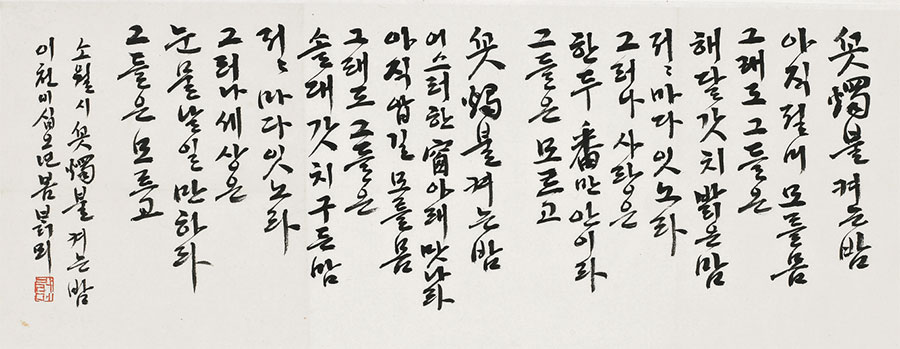 꼿燭불 켜는밤
아직절머 모를몸
그래도 그들은
해달갓치 밝은맘
저〃마다 잇노라
그러나 사랑은
한두番만 안이라
그들은 모르고
꼿燭불 켜는밤
어스러한 窗아래 맛나라
아직압길 모를몸
그래도 그들은
솔대갓치 구든맘
저〃마다 잇노라
그러나 세상은
눈물날일 만하라
그들은 모르고
소월시 꼿燭불 켜는밤
이천이십오년 봄